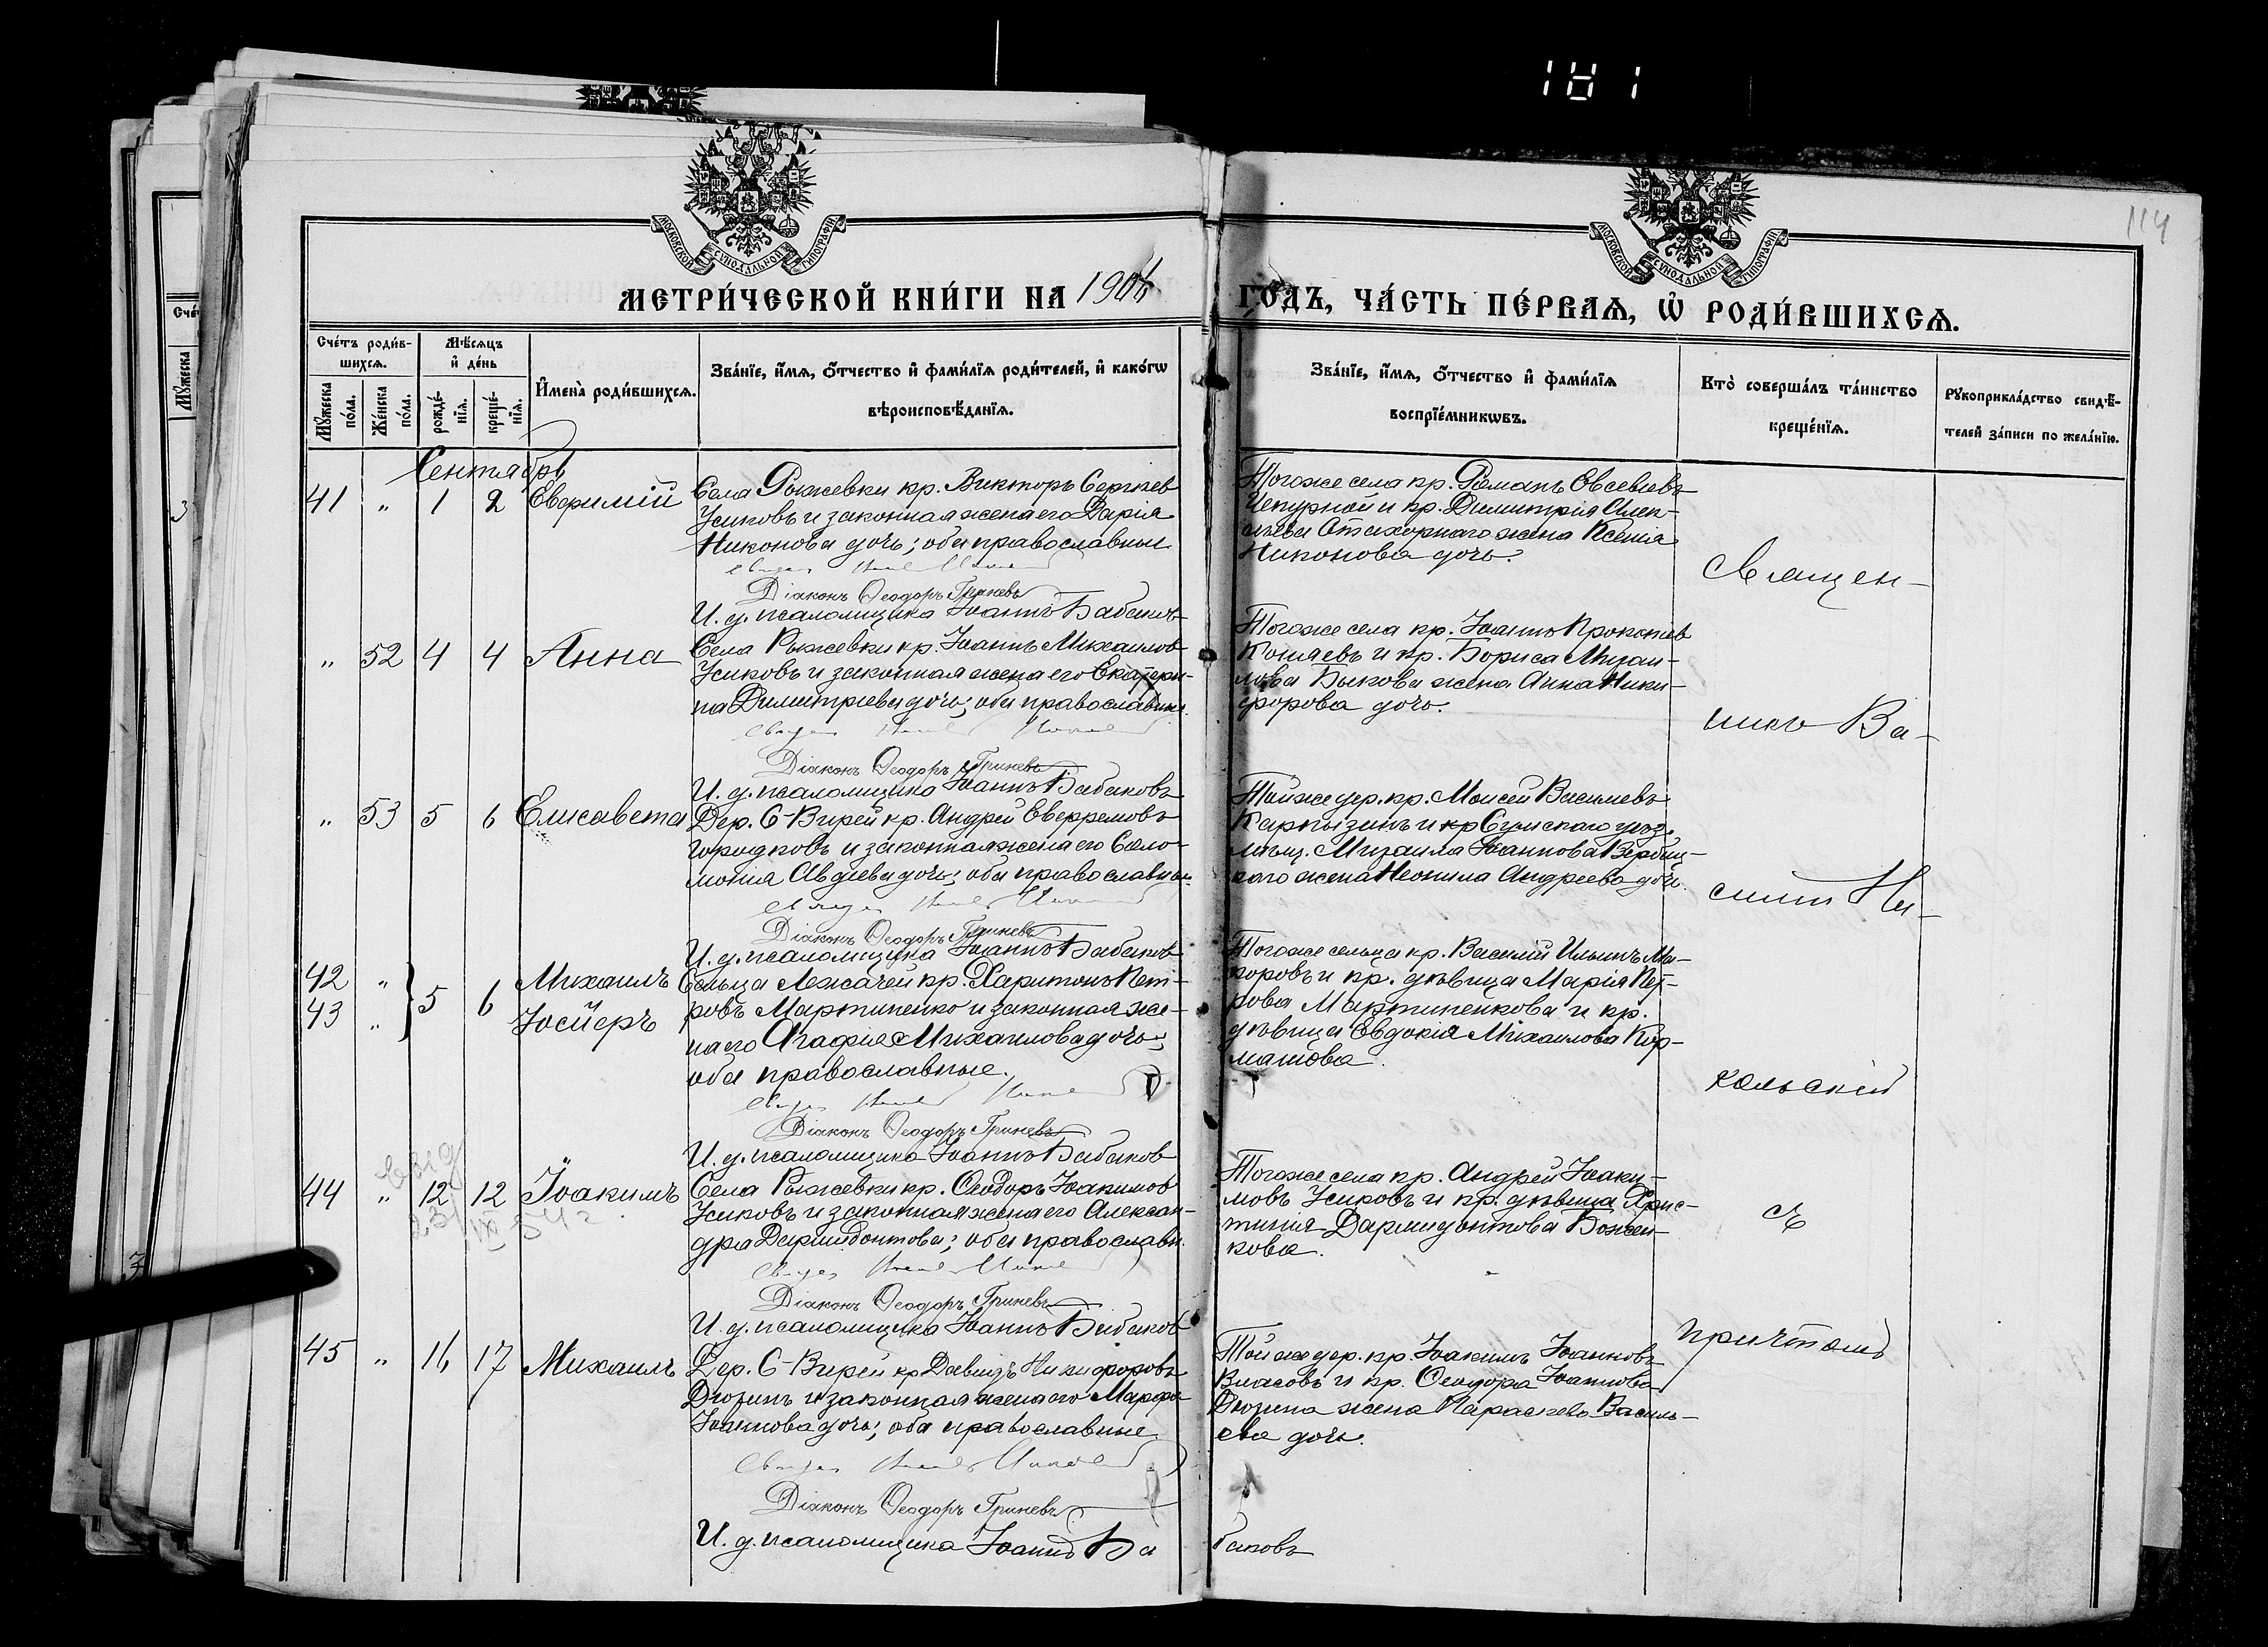 181
114
МОСКОВСКОЙ СѴНОДАЛЬНОЙ ТИПОГРАФІИ
МОСКОВСКОЙ СѴНОДАЛЬНОЙ ТИПОГРАФІИ
МЕТРИ́ЧЕСКОЙ КНИ́ГИ НА 1906
ГО́ДЪ, ЧА́СТЬ ПЕ́РВАѦ, Ѡ҆ РОДИ́ВШИХСѦ.
Сче́тъ роди́в-
шихся.
Мѣ́сяцъ
и҆ де́нь
Мꙋ́жеска
по́ла.
Же́нска
по́ла.
рожде́-
нїѧ.
креще́-
нїѧ.
И҆мена̀ роди́вшихсѧ.
Зва́нїе, и҆́мѧ, ѻ҆́тчество и҆ фами́лїѧ роди́телей, и҆ како́гѡ
вѣроисповѣ́данїѧ.
Зва́нїе, и҆́мѧ, ѻ҆́тчество и҆ фами́лїѧ
воспрїе́мникѡвъ.
Кто̀ соверша́лъ та́инство
креще́нїѧ.
Рꙋкоприкла́дство свидѣ́-
телей за́писи по жела́нїю.
Сентябрь
41 " 1 2 Евфимій
Села Рыжевки кр. Викторъ Сергѣев
Усиковъ и законная жена его Дарія
Никонова дочь; оба православные
Діаконъ Ѳеодоръ Гриневъ
И. д. псаломщика Іоаннъ Бабаковъ
Тогоже села кр. Романъ Евсевіевъ
Чепурной и кр. Димитрія Алек-
жена Ксенія
Никонова дочь.
" 52 4 4 Анна
Села Рыжевки кр. Іоаннъ Михаилов
Усиковъ и законная жена его Екатери-
на Димитріева дочь; оба православные
Діаконъ Ѳеодоръ Гриневъ
И. д. псаломщика Іоаннъ Бабаковъ
Тогоже села кр. Іоаннъ Прокопіев
Кошаевъ и кр. Бориса Михаи-
лова Быкова жена Анна Ники-
форова дочь.
" 53 5 6 Елисавета
Дер. С-Вирей кр. Андрей Евфремовъ
Городковъ и законная жена его Соло-
монія Авдіева дочь; оба православные
Діаконъ Ѳеодоръ Гриневъ
И. д. псаломщика Іоаннъ Бабаковъ
Тойже дер. кр. Моисей Васильевъ
Карпызинъ и кр Сумскаго уѣз.
мѣщ. Михаила Іоаннова Вербиц-
каго жена Неонила Андреева дочь.
42 " 5 6 Михаилъ
43 "
Сельца Лежачей кр. Харитонъ Пет-
ровъ Мартиненко и законная же-
на его Агафія Михаилова дочь;
оба православные.
Діаконъ Ѳеодоръ Гриневъ
И. д. псаломщика Іоаннъ Бабаков
Тогоже сельца кр. Василій Ильинъ Ма-
каровъ и кр. дѣвица Марія Пет-
рова Мартиненкова и кр.
дѣвица Евдокія Михаилова Кор-
машова.
44 " 12 12 Іоакимъ
Села Рыжевки кр. Ѳеодоръ Іоакимов
Усиковъ и законная жена его Алексан-
дра Дармидонтова; оба православн.
Діаконъ Ѳеодоръ Гриневъ
И. д. псаломщика Іоаннъ Бабаков
Тогоже села кр. Андрей Іоаки-
мовъ Усиковъ и кр. дѣвица Хрис-
тинія Дармидонтова Божен-
кова.
45 " 16 17 Михаилъ
Дер. С-Вирей кр Давидъ Никифоровъ
Дюзинъ и законная жена его Марфа
Іоаннова дочь; оба православные
Діаконъ Ѳеодоръ Гриневъ
И. д. псаломщика Іоаннъ Ба баковъ
Тойже дер. кр. Іоакимъ Іоанновъ
Власовъ и кр. Ѳеодора Іоаннова
Дюзина жена Параскева Василь-
ева дочь.
Священ-
никъ Ва-
силій Ни-
кольскій
съ
причтомъ